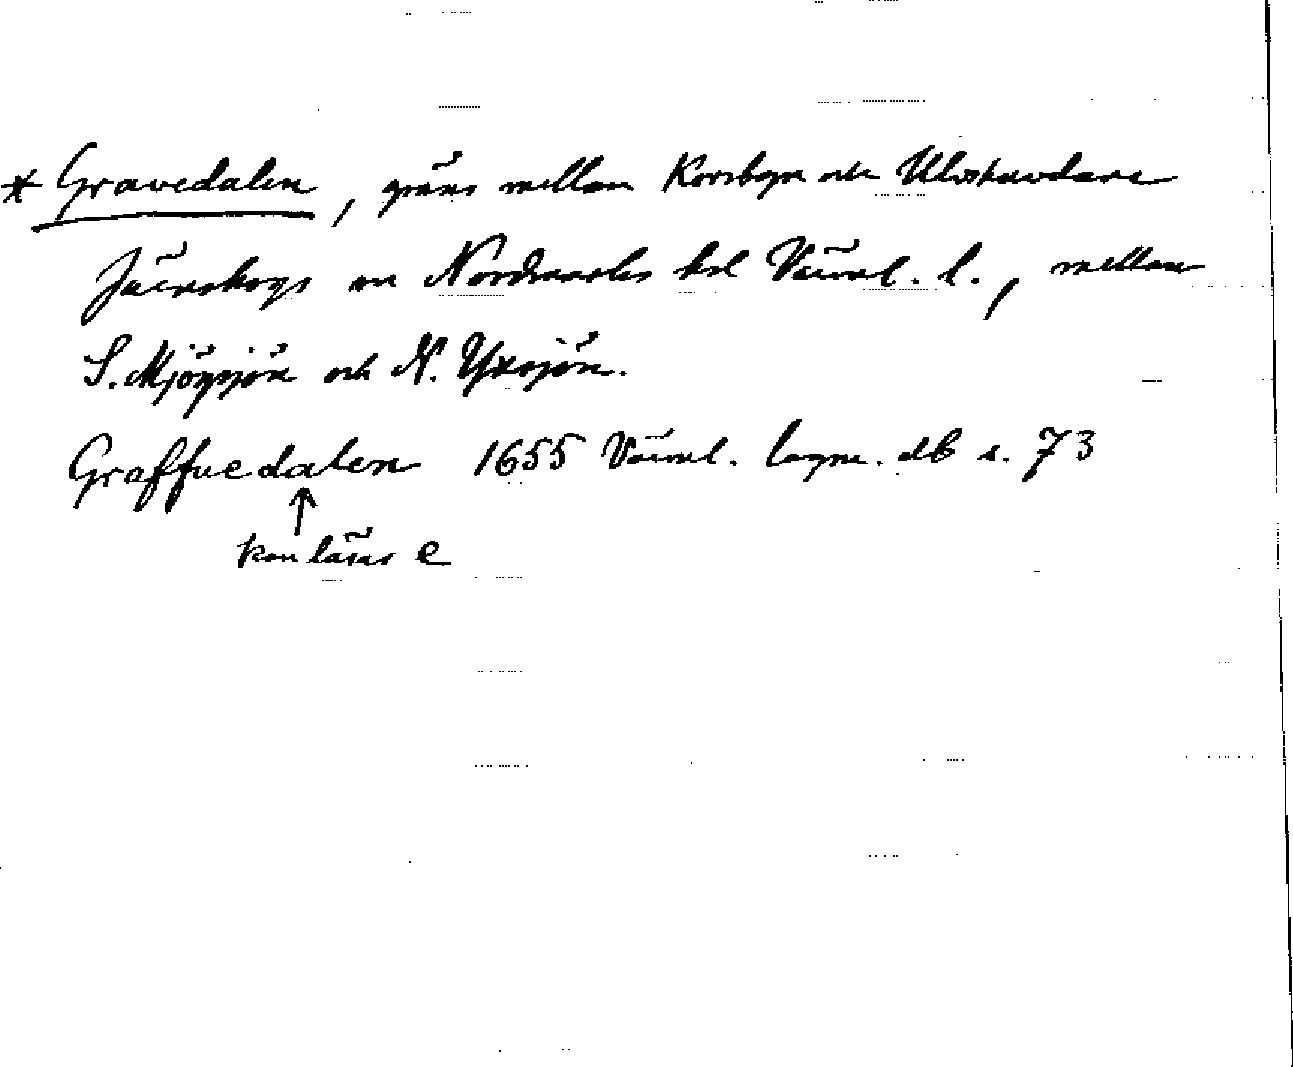 * Gravedalen, gräns mellan Korsbyn och Ulvstavdane
Järnskogs sn Nordmarks hd Värml. l., mellan
S. Mjögsjön och N. Yxesjön.
Graffuedalen 1655 Värml. lagm. db s. 73
↑
kan läsas e